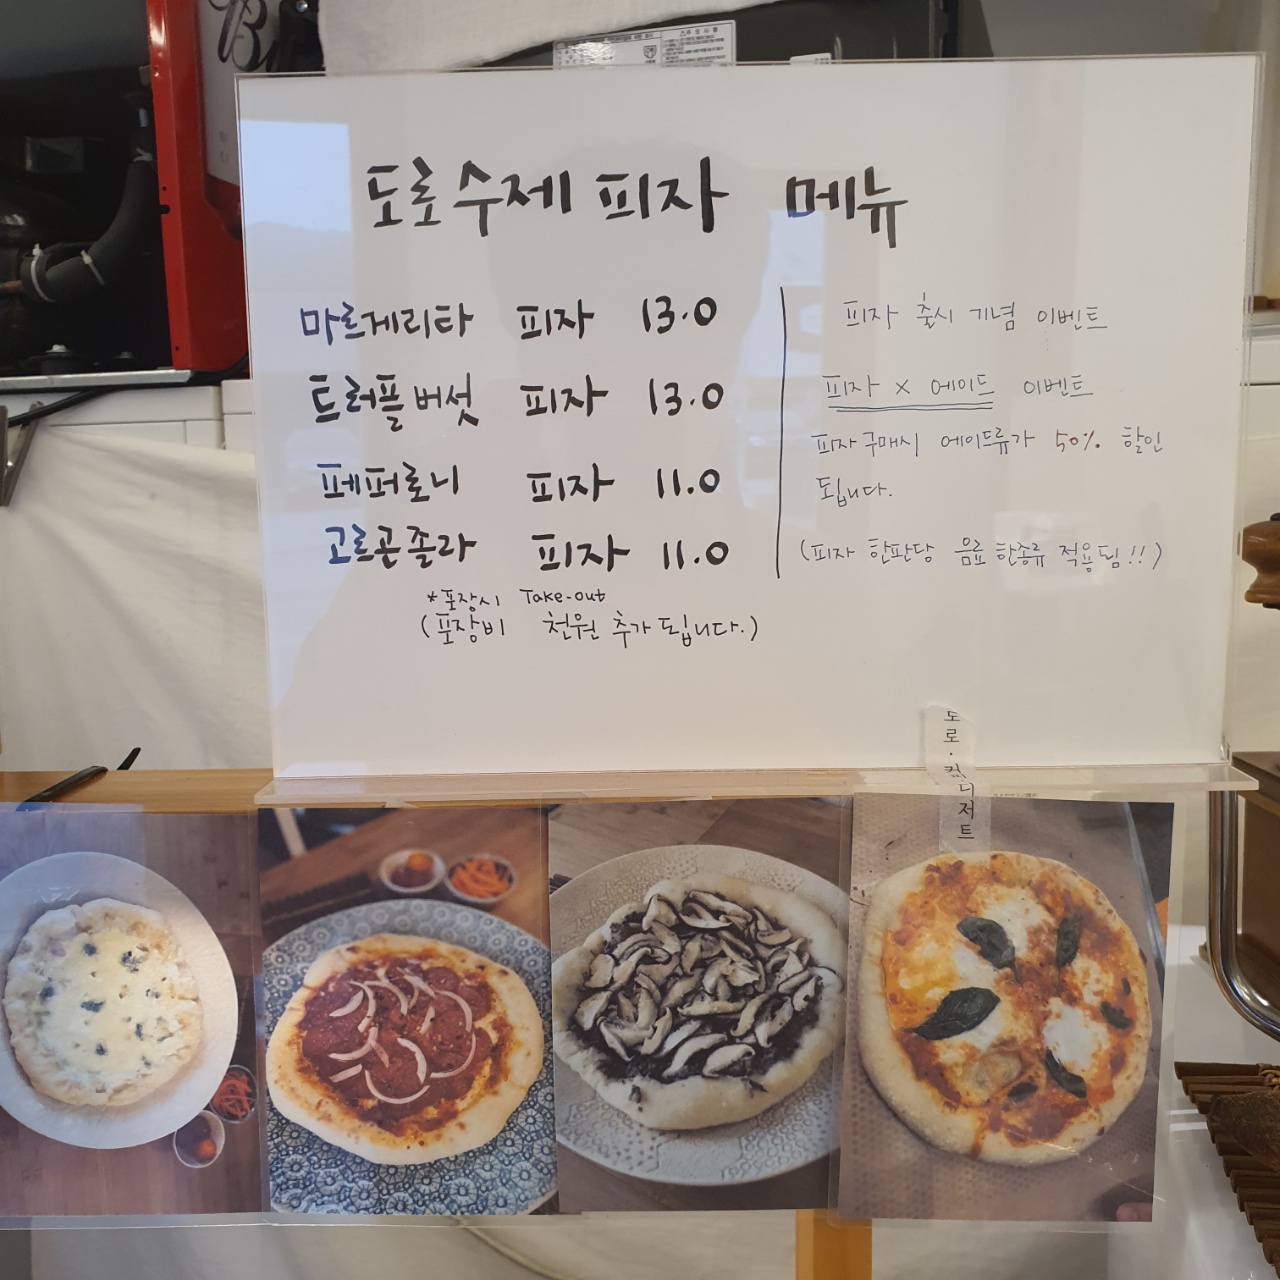 도로 수제 피자 메뉴
마르게리타 피자 13.0
트러플버섯 피자 13.0
페퍼로니 피자 11.0
고르곤졸라 피자 11.0
*포장시 Take-out
(포장비 천원 추가 됩니다.)
피자 출시 기념 이벤트
피자 x 에이드 이벤트
피자 구매시 에이드류가 50% 할인
됩니다.
(피자 한판당 음료 한종류 적용됨!!)